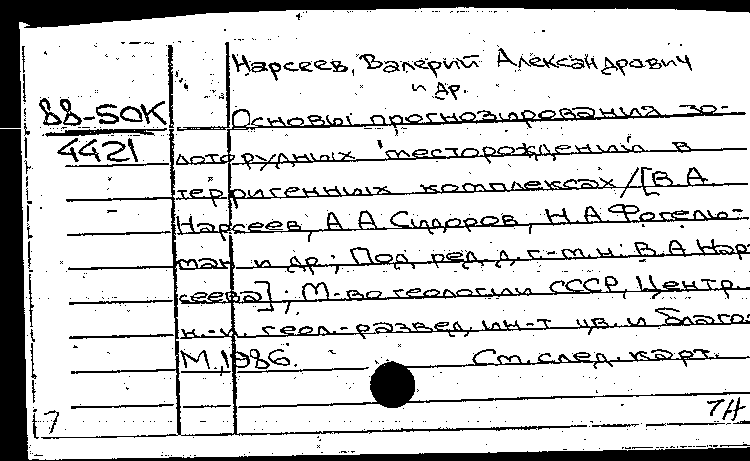 Нарсеев, Валерий Александрович
и др.
88-50К
4421
Основы прогнозирования зо-
лоторудных месторождений в
терригенных комплексах/[В.А.
Нарсеев, А А Сидоров, Н.А Фогель-
ман и др.; Под ред. д. г.-м.н. В.А Нар-
сеева]; М-во геологии СССР, Центр.
н.-и. геол.-развед. ин-т цв. и благо-
М., 1986. См. след. карт.
7
7Н